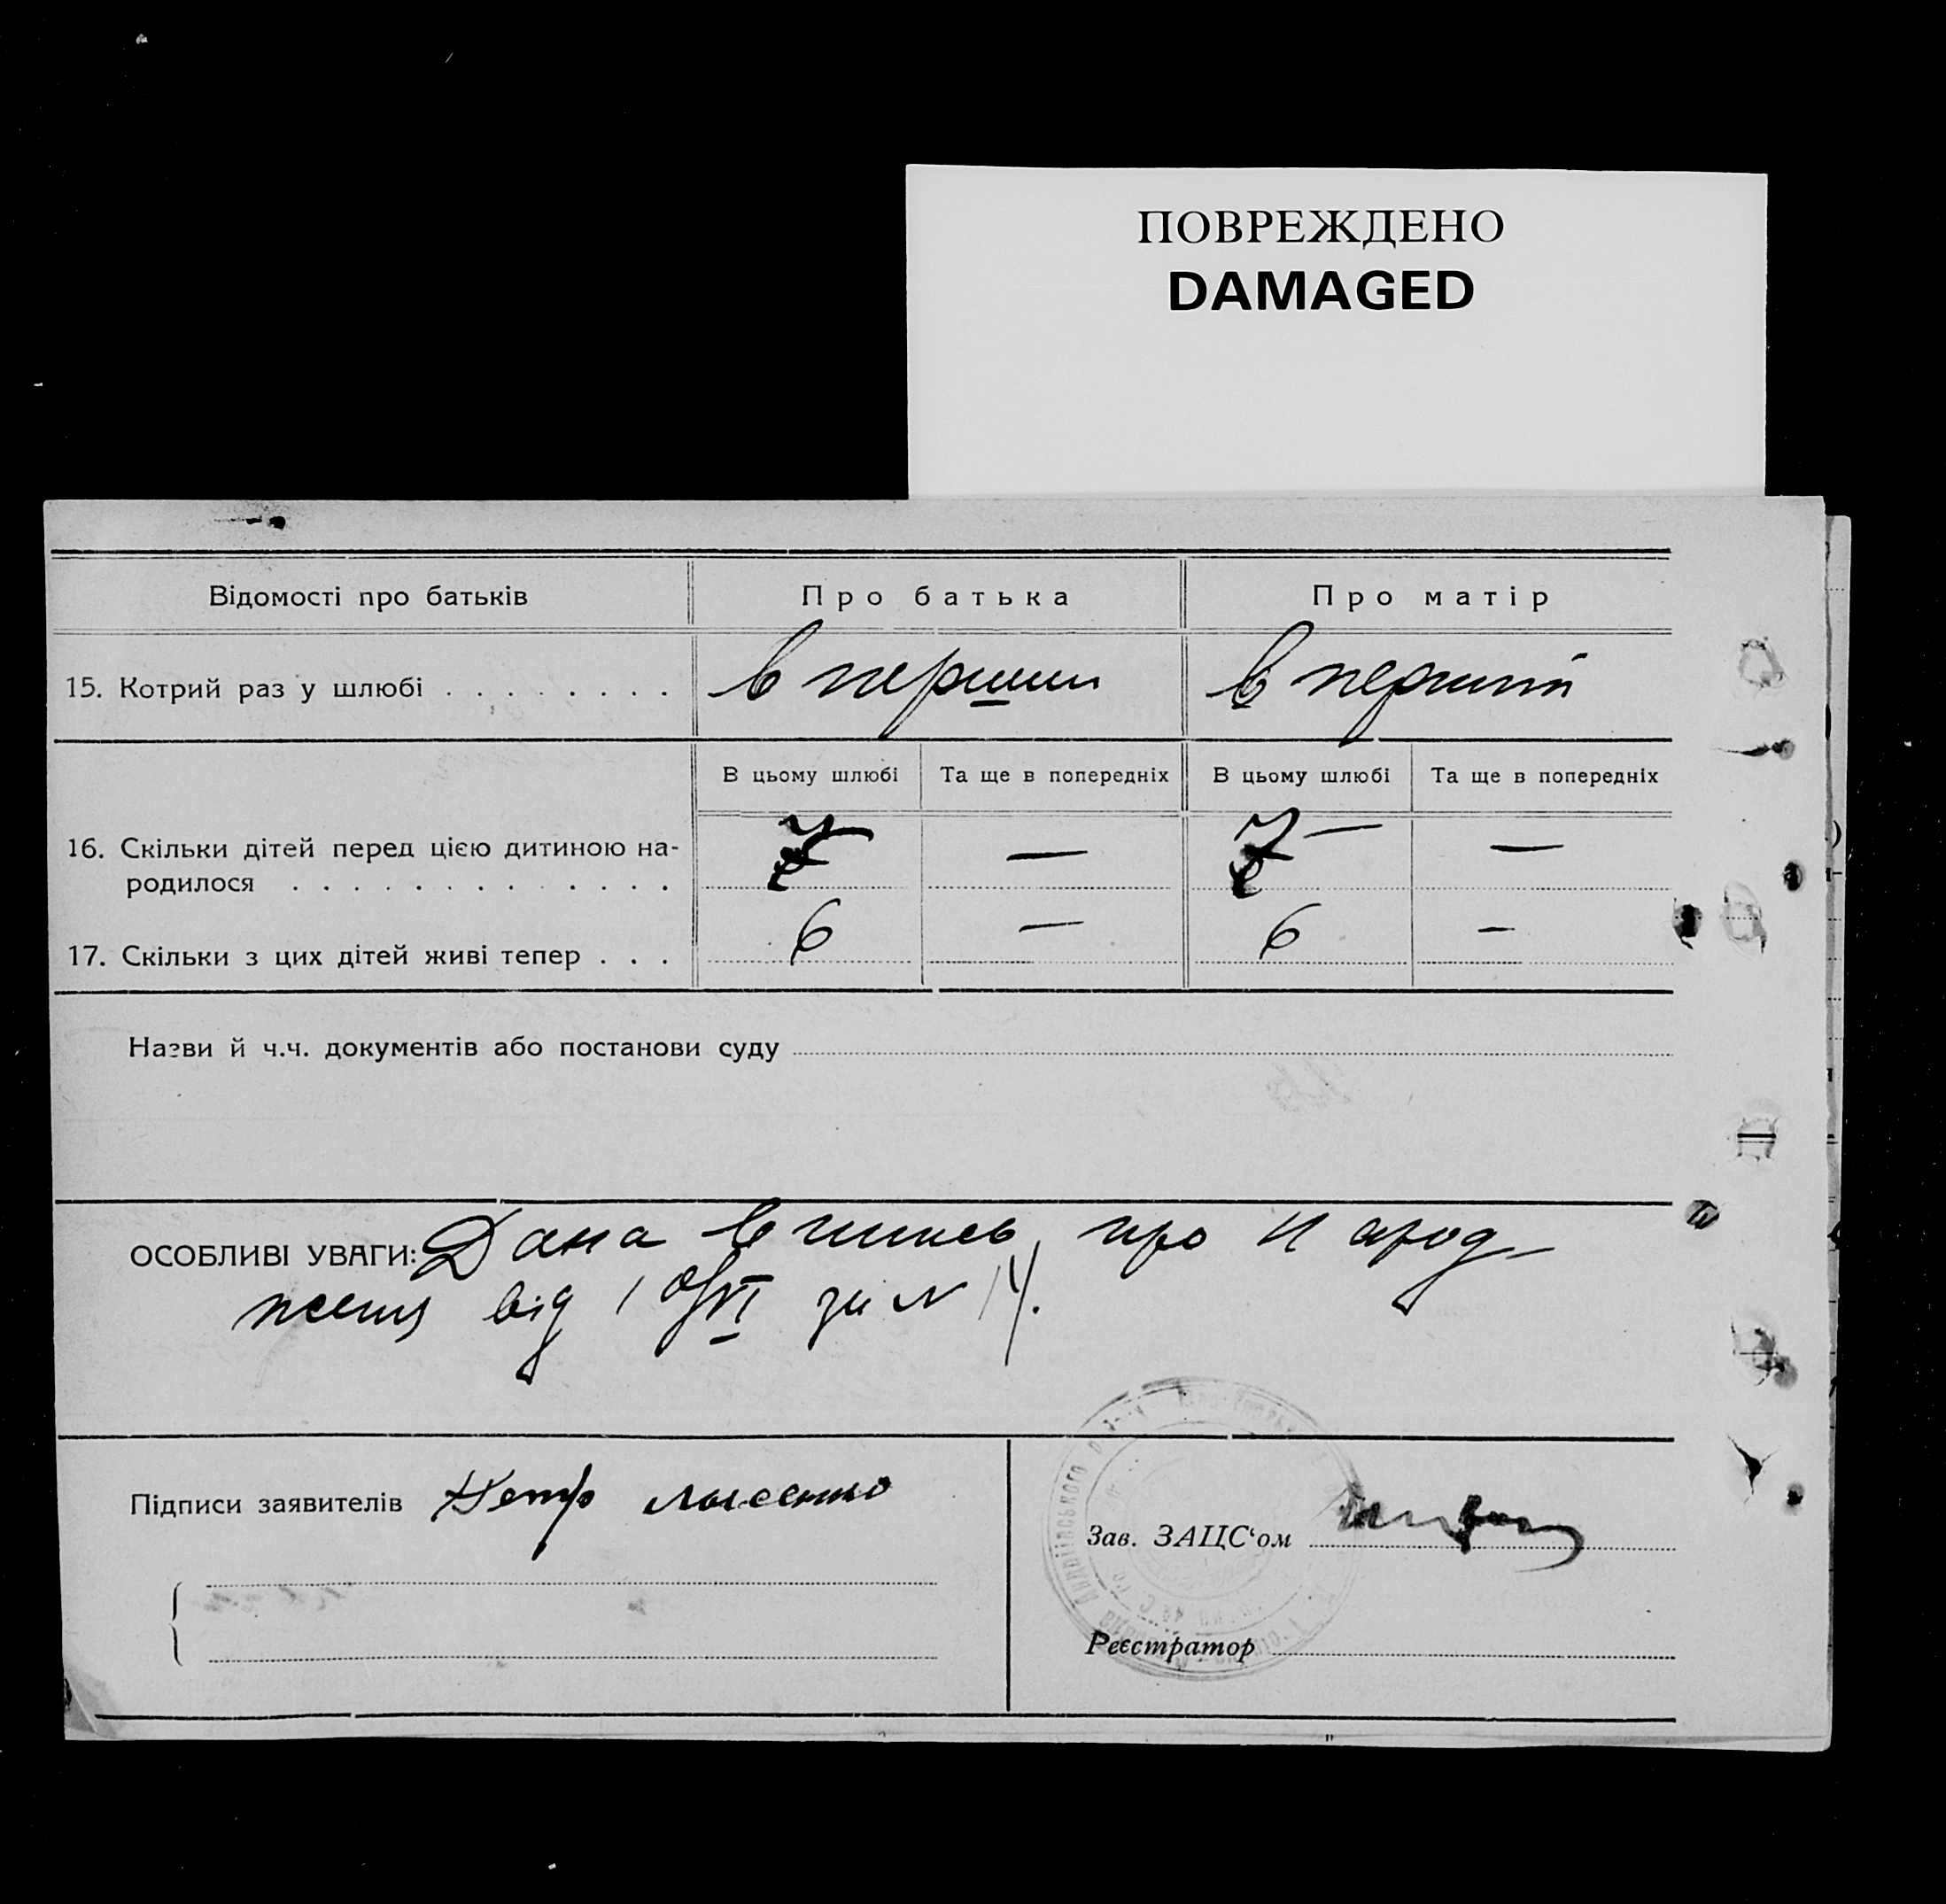 ПОВРЕЖДЕНО
DAMAGED
Відомості про батьків
Про батька
Про матір
15. Котрий раз у шлюбі . . . . . . . .
в перший
в перший
В цьому шлюбі
Та ще в попередніх
В цьому шлюбі
Та ще в попередніх
16. Скільки дітей перед цією дитиною на-
родилося . . . . . . . . . . . . .
7
—
7
—
17. Скільки з цих дітей живі тепер . . .
6
—
6
—
Назви й ч.ч. документів або постанови суду
ОСОБЛИВІ УВАГИ: Дана випись про народ-
ження від 1 VI за N 14.
Підписи заявителів Петр Лысенко
Зав. ЗАЦС‘ом
Реєстратор